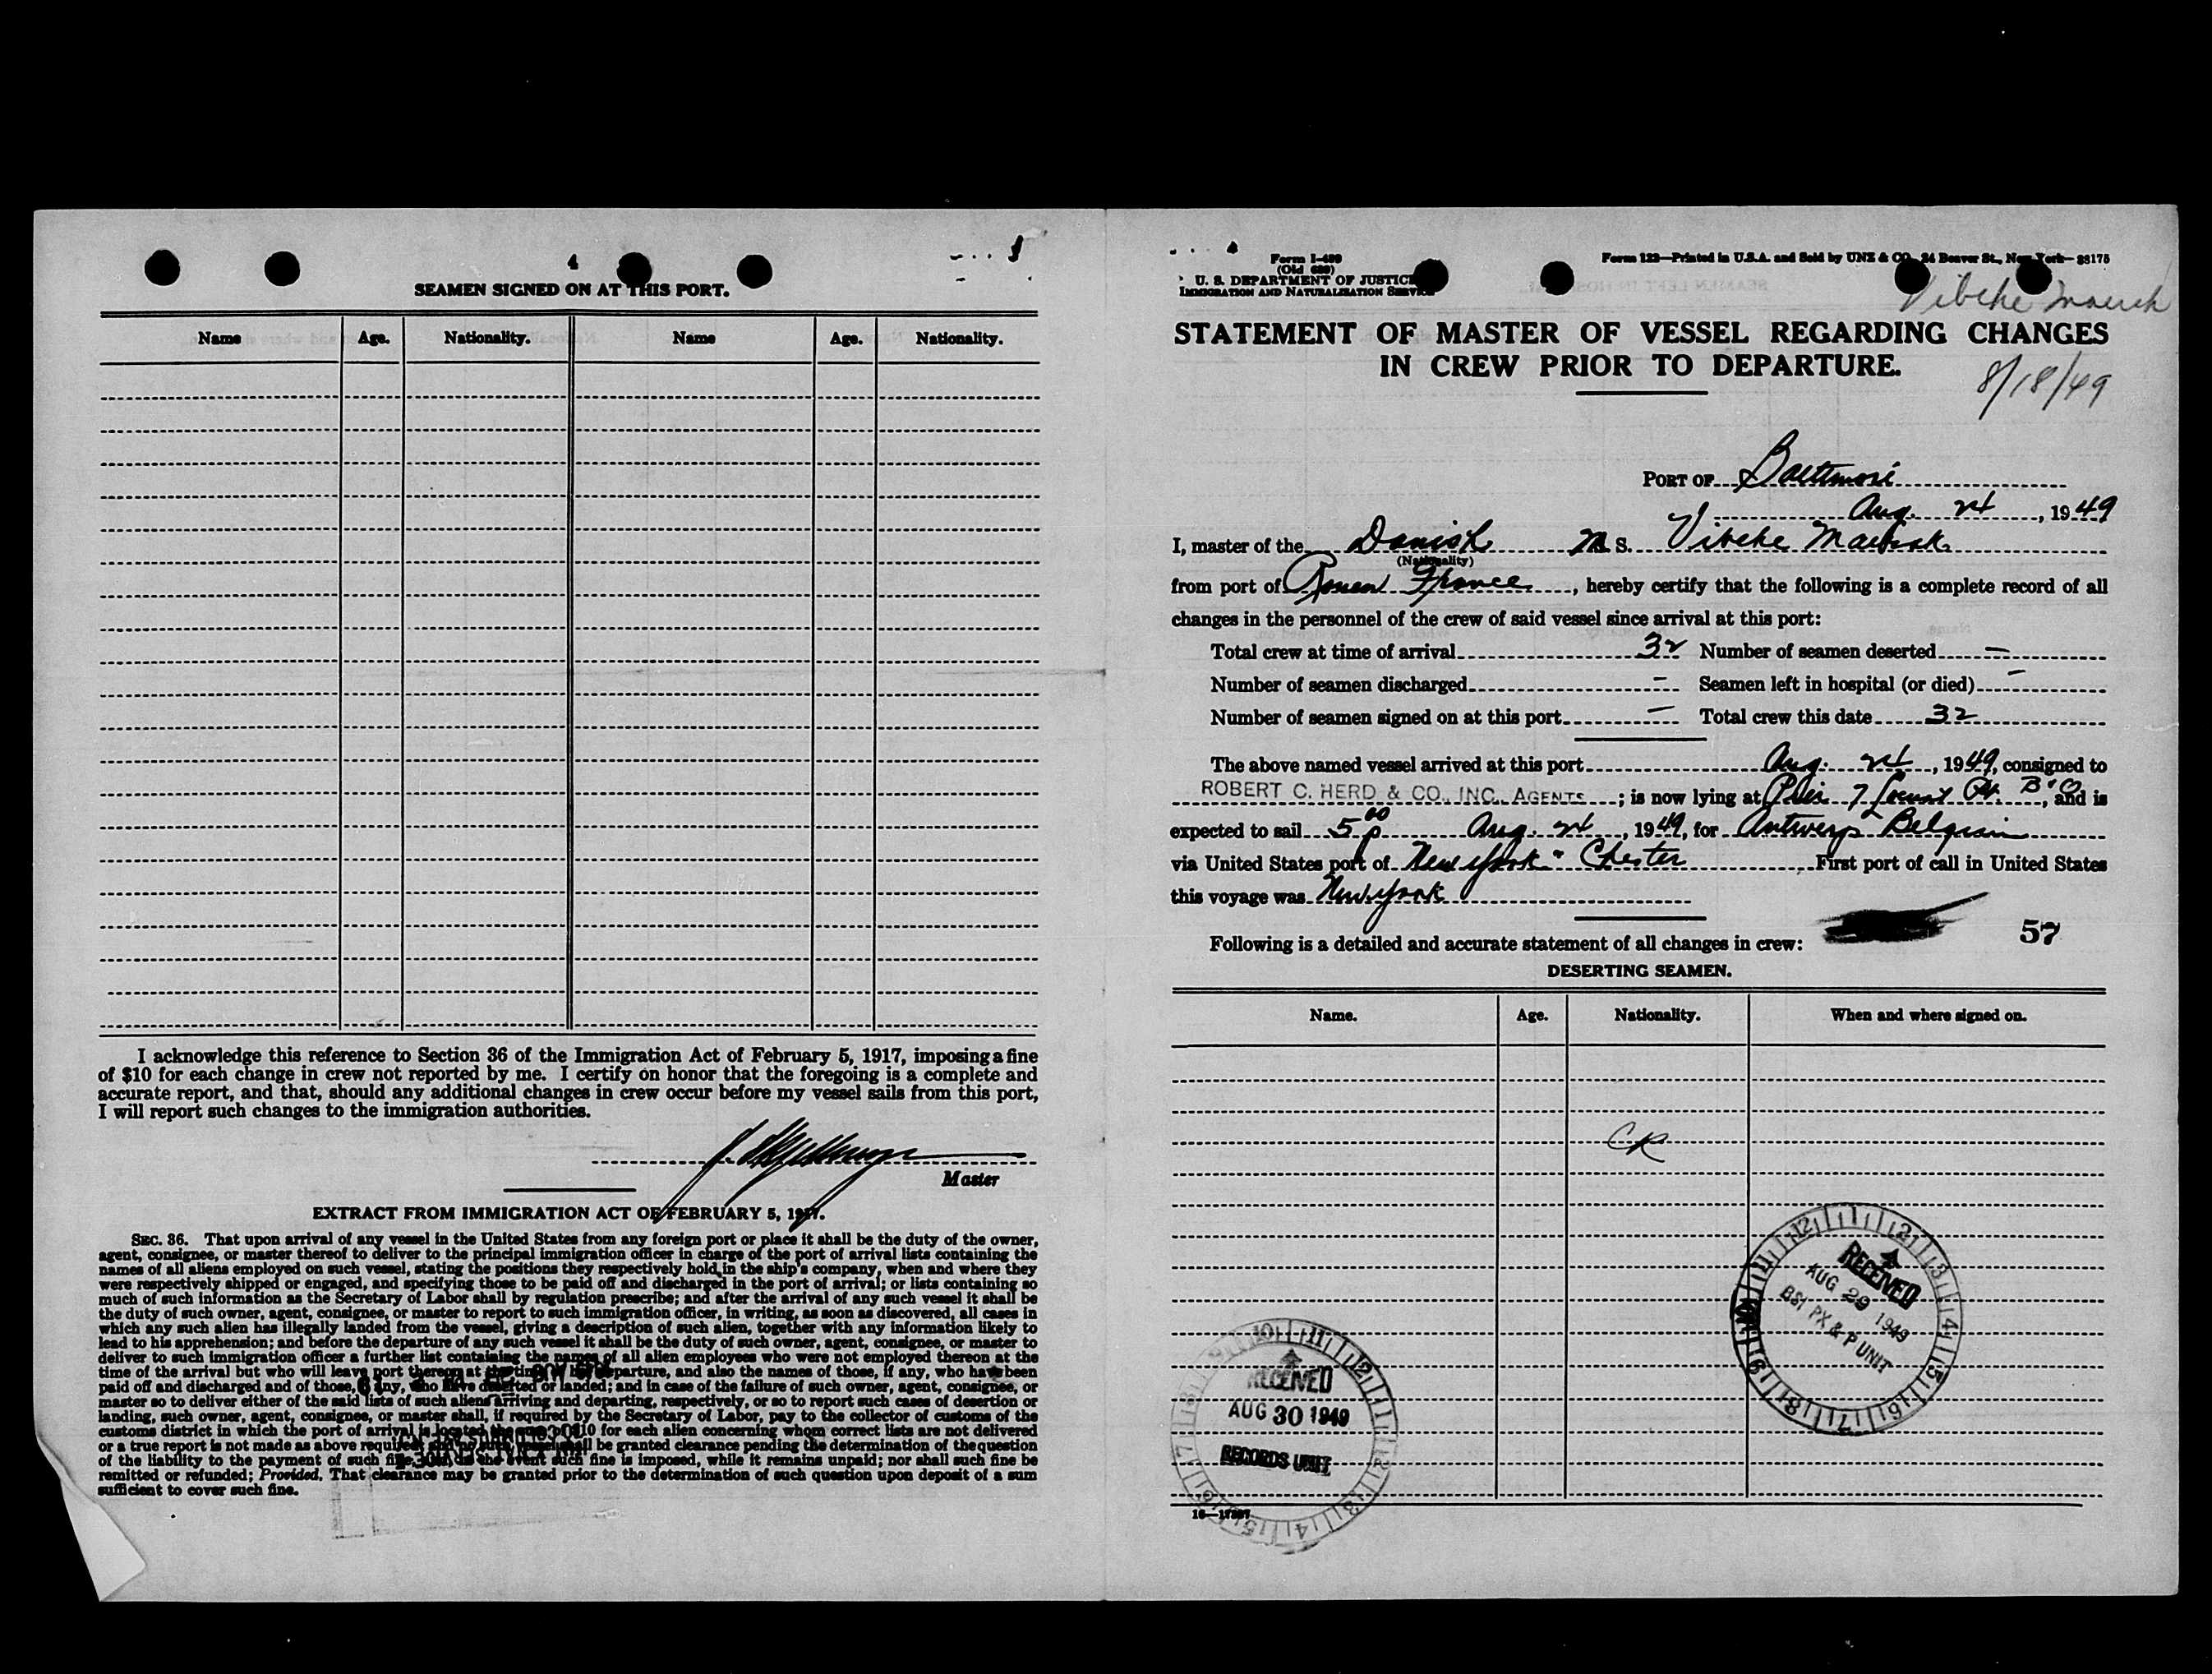 4
SEAMEN SIGNED ON AT THIS PORT.
Name Age. Nationality. Name Age. Nationality.
I acknowledge this reference to Section 36 of the Immigration Act of February 5, 1917, imposing a fine
of $10 for each change in crew not reported by me. I certify on honor that the foregoing is a complete and
accurate report, and that, should any additional changes in crew occur before my vessel sails from this port,
I will report such changes to the immigration authorities.
Master
EXTRACT FROM IMMIGRATION ACT OF FEBRUARY 5, 1917.
SEC. 36. That upon arrival of any vessel in the United States from any foreign port or place it shall be the duty of the owner,
agent, consignee, or master thereof to deliver to the principal immigration officer in charge of the port of arrival lists containing the
names of all aliens employed on such vessel, stating the positions they respectively hold in the ship's company, when and where they
were respectively shipped or engaged, and specifying those to be paid off and discharged in the port of arrival; or lists containing so
much of such information as the Secretary of Labor shall by regulation prescribe; and after the arrival of any such vessel it shall be
the duty of such owner, agent, consignee, or master to report to such immigration officer, in writing, as soon as discovered, all cases in
which any such alien has illegally landed from the vessel, giving a description of such alien, together with any information likely to
lead to his apprehension; and before the departure of any such vessel it shall be the duty of such owner, agent, consignee, or master to
deliver to such immigration officer a further list containing the names of all alien employees who were not employed thereon at the
time of the arrival but who will leave port thereon at the time of departure, and also the names of those, if any, who have been
paid off and discharged and of those, if any, who have deserted or landed; and in case of the failure of such owner, agent, consignee, or
master so to deliver either of the said lists of such aliens arriving and departing, respectively, or so to report such cases of desertion or
landing, such owner, agent, consignee, or master shall, if required by the Secretary of Labor, pay to the collector of customs of the
customs district in which the port of arrival is located the sum of $10 for each alien concerning whom correct lists are not delivered
or a true report is not made as above required; and no such vessel shall be granted clearance pending the determination of the question
of the liability to the payment of such fine, and in the event such fine is imposed, while it remains unpaid; nor shall such fine be
remitted or refunded; Provided, That clearance may be granted prior to the determination of such question upon deposit of a sum
sufficient to cover such fine.
Form I-489
(Old 689)
U. S. DEPARTMENT OF JUSTICE
IMMIGRATION AND NATURALIZATION SERVICE
Form 122—Printed in U.S.A. and Sold by UNZ & CO., 24 Beaver St., New York—38175
Vibeke Maersk
STATEMENT OF MASTER OF VESSEL REGARDING CHANGES
IN CREW PRIOR TO DEPARTURE.
8/18/49
PORT OF Baltimore
Aug. 24, 1949
I, master of the Danish M. S. Vibeke Maersk
(Nationality)
from port of Rouen France, hereby certify that the following is a complete record of all
changes in the personnel of the crew of said vessel since arrival at this port:
Total crew at time of arrival 32 Number of seamen deserted —
Number of seamen discharged — Seamen left in hospital (or died) —
Number of seamen signed on at this port — Total crew this date 32
The above named vessel arrived at this port Aug. 24, 1949, consigned to
ROBERT C. HERD & CO., INC., AGENTS; is now lying at Pier 7 Locust Pt. B&O, and is
expected to sail 5 00 p Aug. 24, 1949, for Antwerp Belgium
via United States port of New York - Chester First port of call in United States
this voyage was New York
57
Following is a detailed and accurate statement of all changes in crew:
DESERTING SEAMEN.
Name. Age. Nationality. When and where signed on.
CR
RECEIVED
AUG 29 1949
BSI PX & P UNIT
RECEIVED
AUG 30 1949
RECORDS UNIT